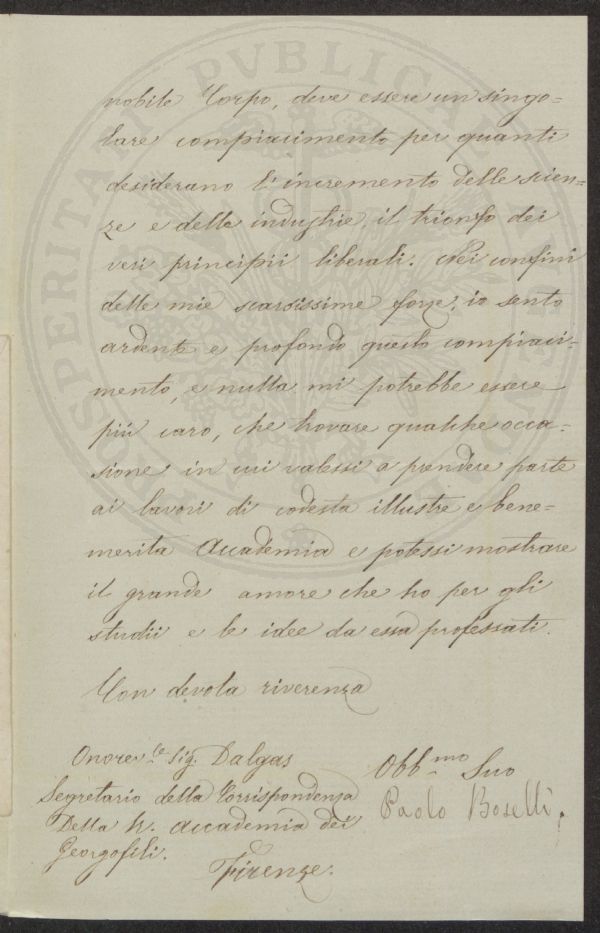 nobile Corpo, deve essere un singo=
lare compiacimento per quanti
desiderano l'incremento delle scien=
ze e delle industrie, il trionfo dei
veri principii liberali. Nei confini
delle mie scarsissime forze, io sento
ardente e profondo questo compiaci=
mento, e nulla mi potrebbe essere
più caro, che trovare qualche occa=
sione in cui valessi a prendere parte
ai lavori di codesta illustre e bene=
merita Accademia e potessi mostrare
il grande amore che ho per gli
studii e le idee da essa professati.
Con devota riverenza
Onorev.le Sig. Dalgas
Segretario della Corrispondenza
Della R. Accademia dei
Georgofili.
Firenze.
Obb.mo Suo
Paolo Boselli.
PROSPERITATI PUBLICAE